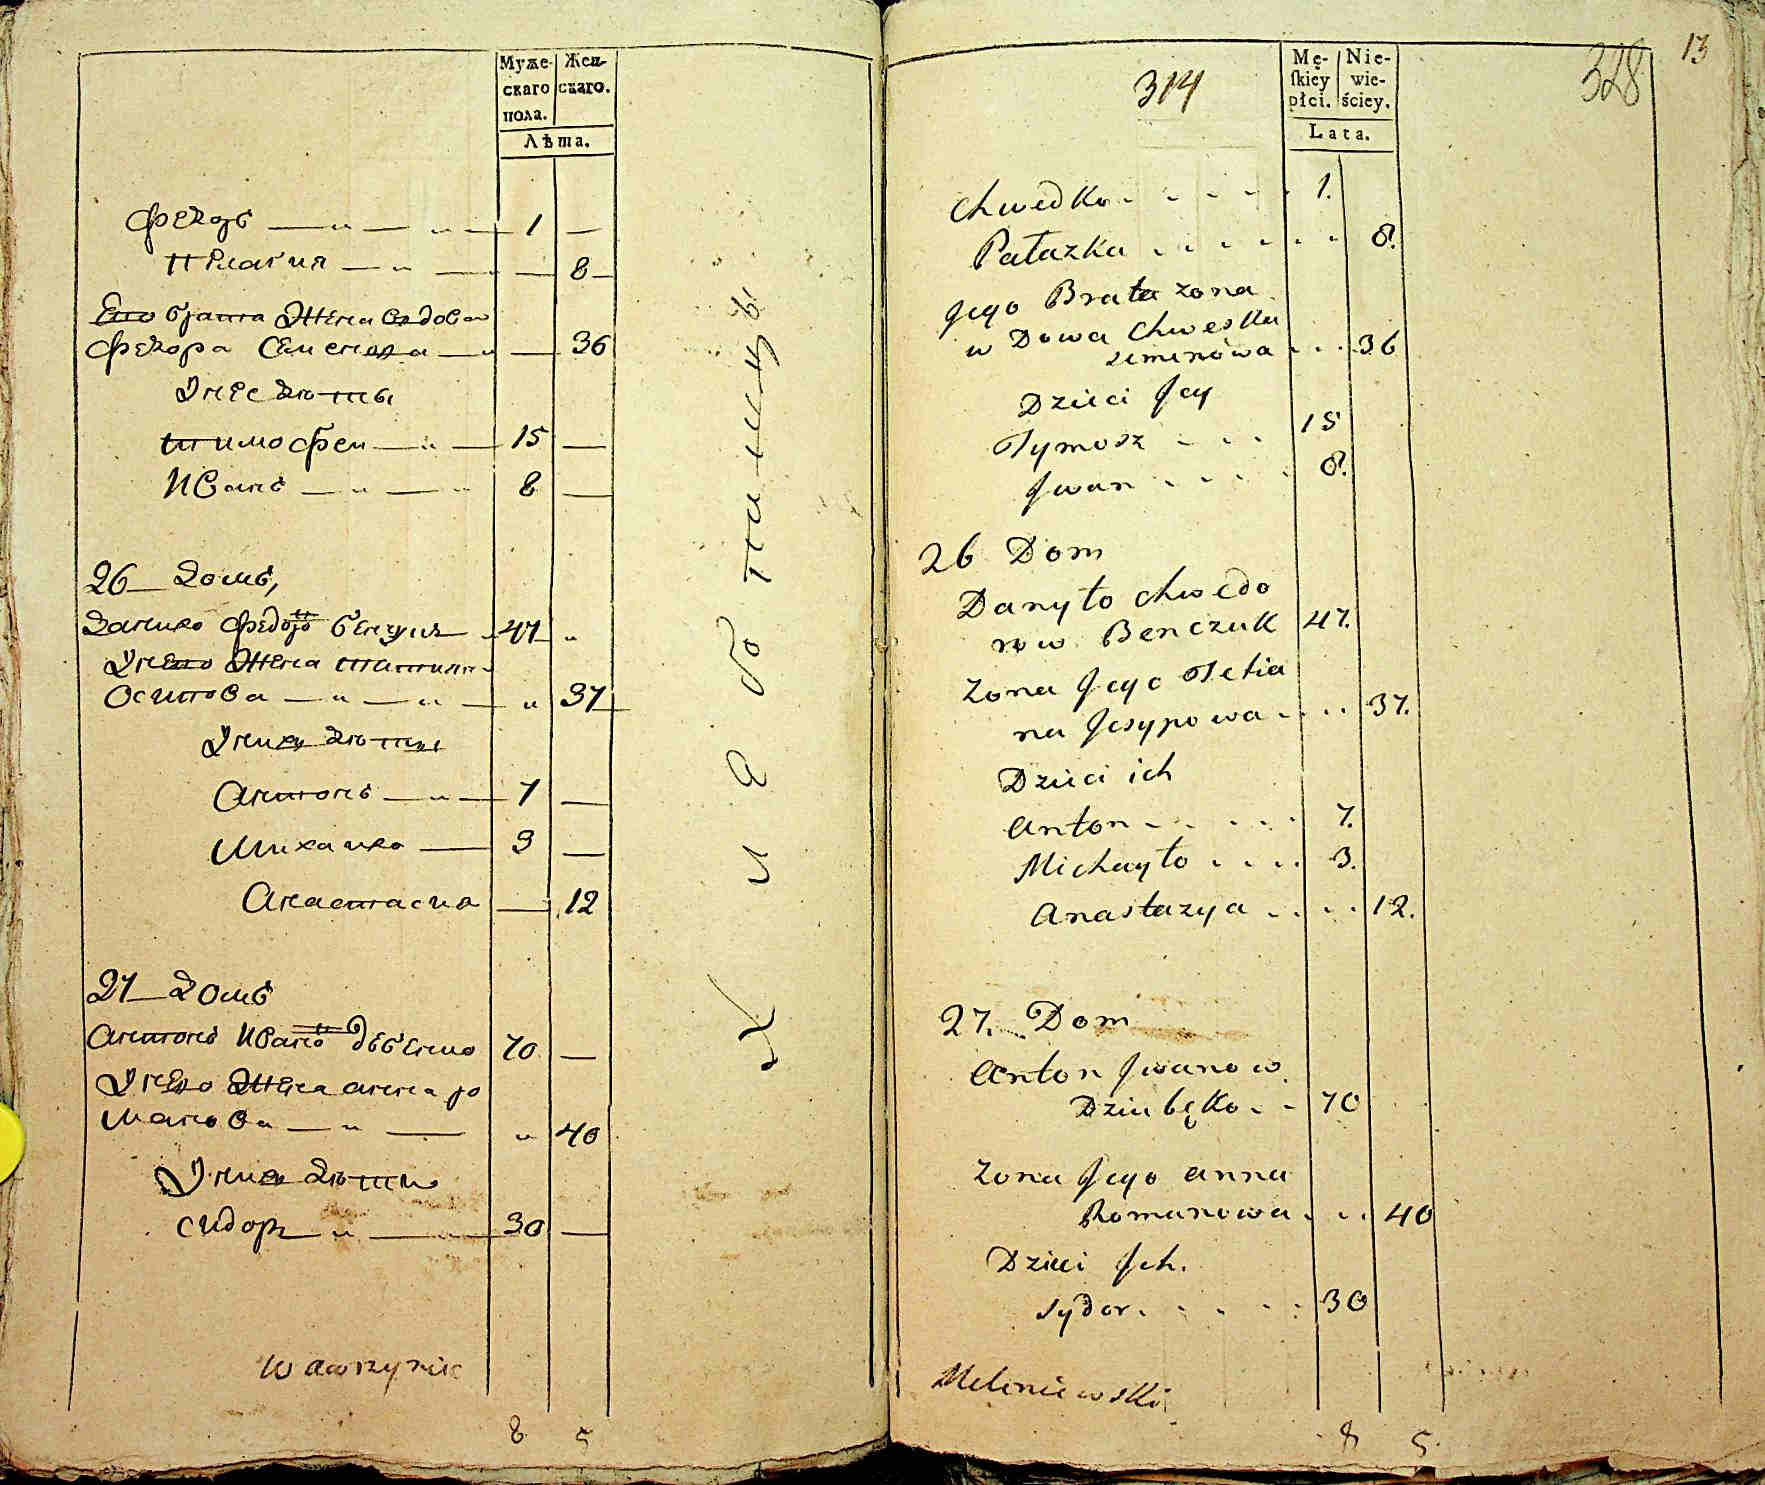 Муже-
скаго
пола.
Жен-
скаго.
Лѣта.
Федоръ 1 —
Пелагия — 8
Его брата жена вдова
Федора Семенова — 36
У нее дѣты
Тимофеи 15 —
Иванъ 8 —
26 домъ,
Данило Федоро Бенчукъ 47 "
У него жена Татияна
Осипова " 37
У них дѣты
Антонъ 7 —
Михаило 3 —
Анастасиа — 12
27 домъ
Антонъ Ивано 70 —
У него жена анна ро
манова " 40
У них дѣти
Сидоръ 30 —
Wawrzyniec
8 5
314
Mę-
skiey
płci.
Nie-
wie-
ściey.
Lata.
328
13
Chwedko 1.
Pałazka 8.
Jego Brata zona
w Dowa Chweska
semenowa 36
Dzieci Jey
Tymosz 15
Jwan 8.
26 Dom
Danyło Chwedo
row Benczuk 47.
Zona Jego Tetia
na Jesypowa 37.
Dzieci ich
Anton 7.
Michayło 3.
Anastazya 12.
27. Dom
Anton Jwanow
Dziubęko 70
Zona Jego Anna
Romanowa 40
Dzieci Jch.
Sydor 30
Meleniewski
8 5